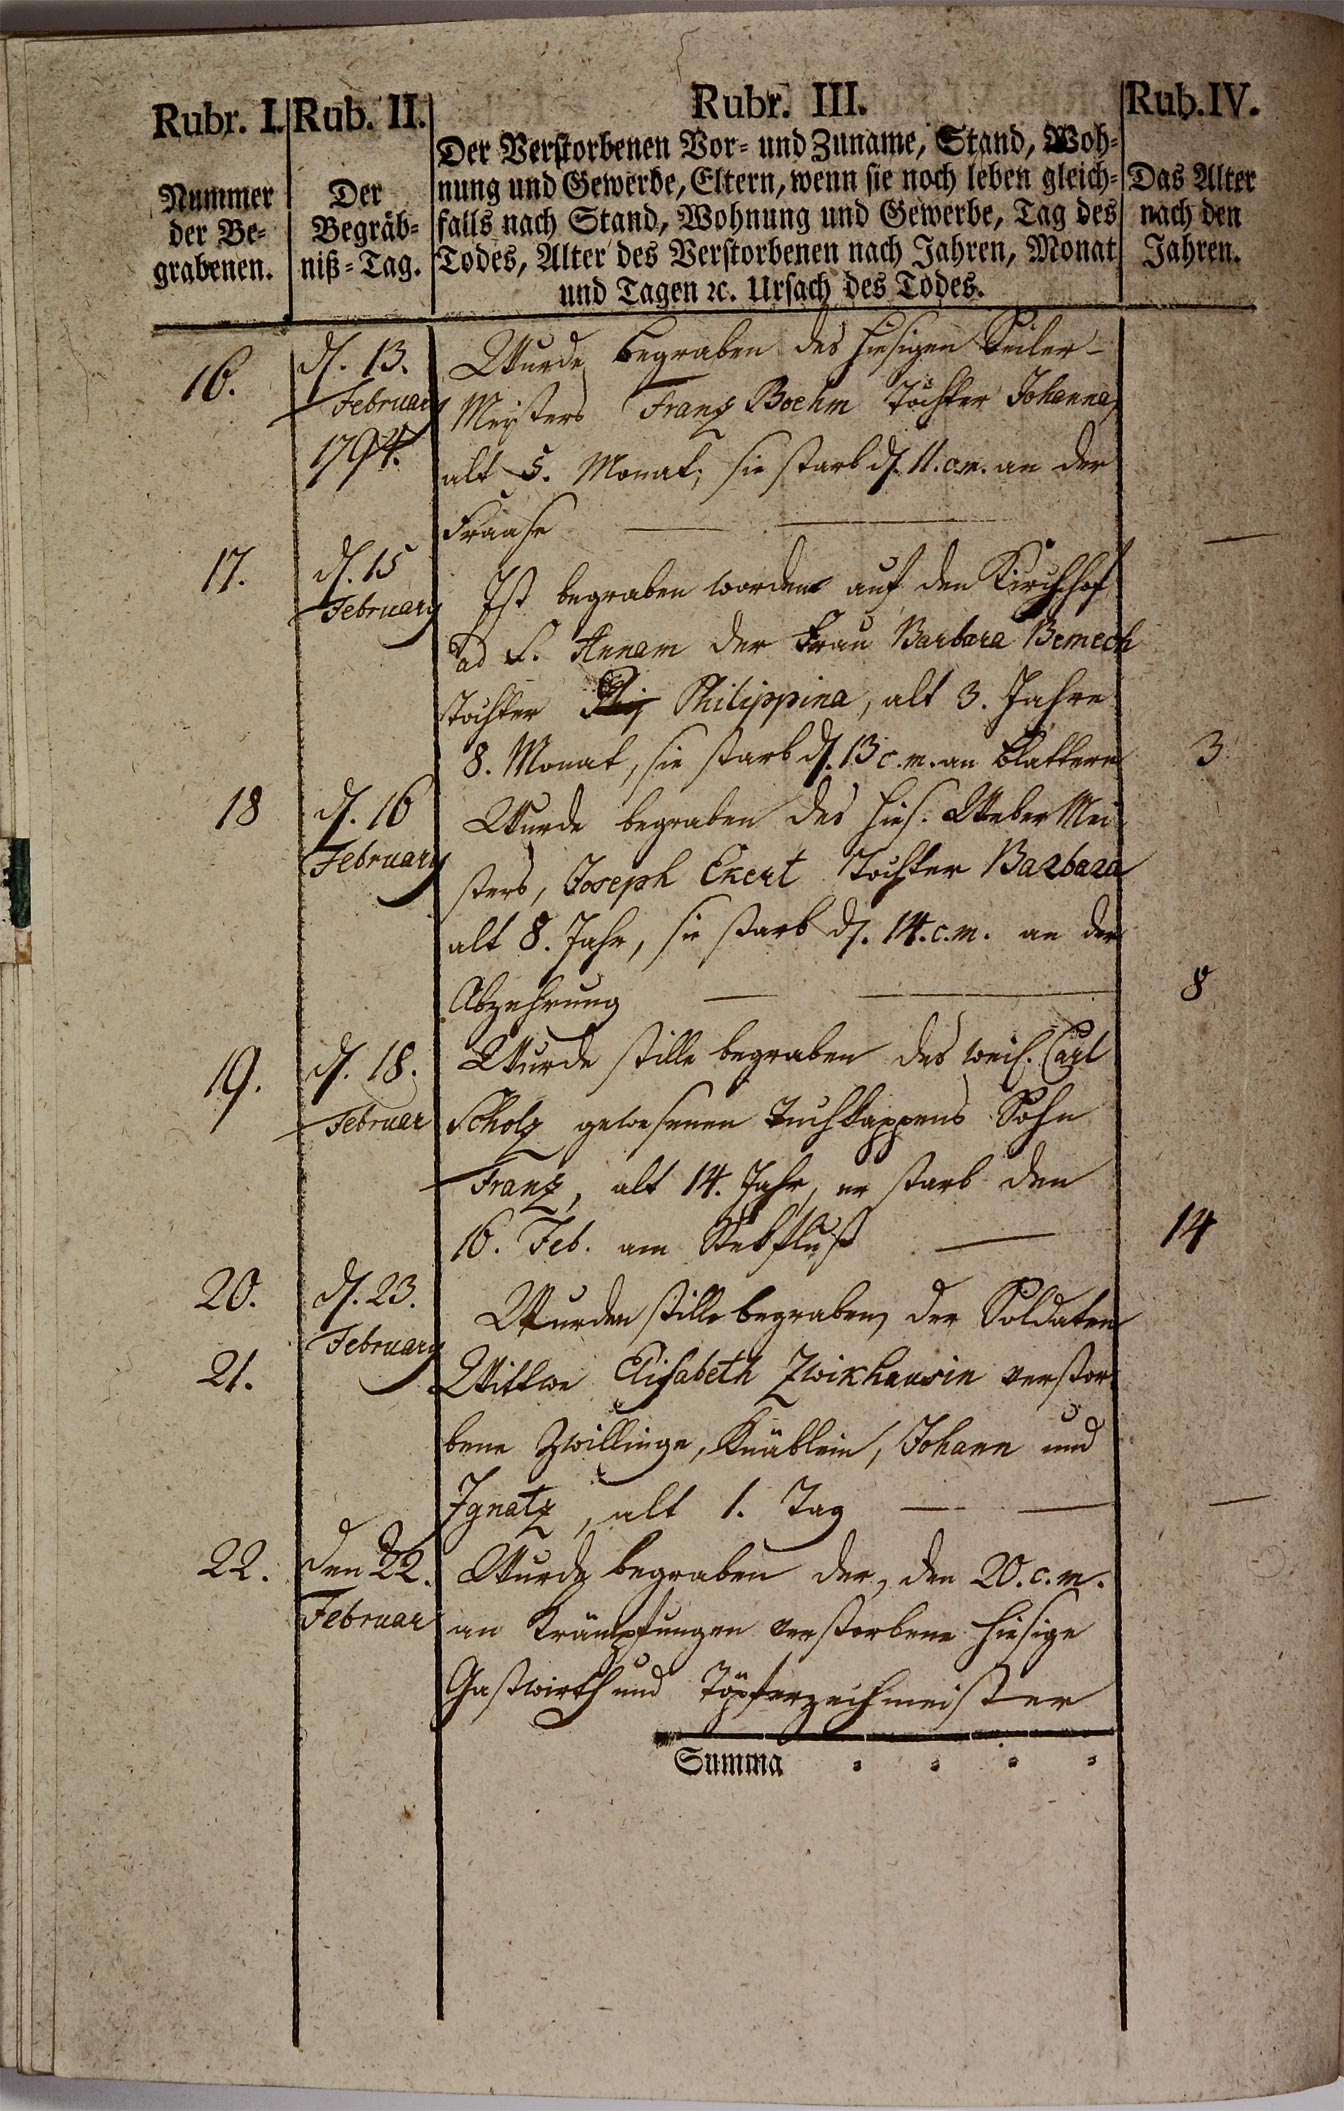 Rubr. I. Rub. II. Rubr. III. Rub. IV.
Nummer der Be-grabenen.
Der Begräb-niß-Tag.
Der Verstorbenen Vor- und Zuname, Stand, Woh-
nung und Gewerbe, Eltern, wenn sie noch leben gleich-
falls nach Stand, Wohnung und Gewerbe, Tag des
Todes, Alter des Verstorbenen nach Jahren, Monat
und Tagen ꝛc. Ursach des Todes.
Das Alter nach den Jahren.
16.
d. 13.
February
1794.
Wurde begraben des hiesigen Seiler-
Meisters Franz Boehm Tochter Johanna,
alt 5. Monat, sie starb d. 11. c.m. an der
Fraase — —
—
17.
d. 15
February
Ist begraben worden auf den Kirchhof
ad S. Annam der Frau Barbara Bemech
Tochter Philippina, alt 3. Jahre
8. Monat, sie starb d. 13 c.m. an Blattern
3
18
d. 16
February
Wurde begraben des hies. Weber Mei
sters, Joseph Ekert Tochter Barbara
alt 8. Jahr, sie starb d. 14. c.m. an der
Abzehrung — —
8
19.
d. 18.
Februar
Wurde stille begraben des weil. Carl
Scholz gewesenen Tuchkappens Sohn
Franz, alt 14. Jahr, er starb den
16. Feb. am —
14
20.
d. 23.
February
21.
Wurden stille begraben, der Soldaten
Wittwe Elisabeth Zwikhausin verstor
bene Zwillinge, Knäblein, Johann und
Ignatz, alt 1. Tag — —
—
22.
den 22.
Februar
Wurde begraben der, den 20. c.m.
an Krämpfungen verstorbene hiesige
Gastwirth und Töpferzechmeister
Summa